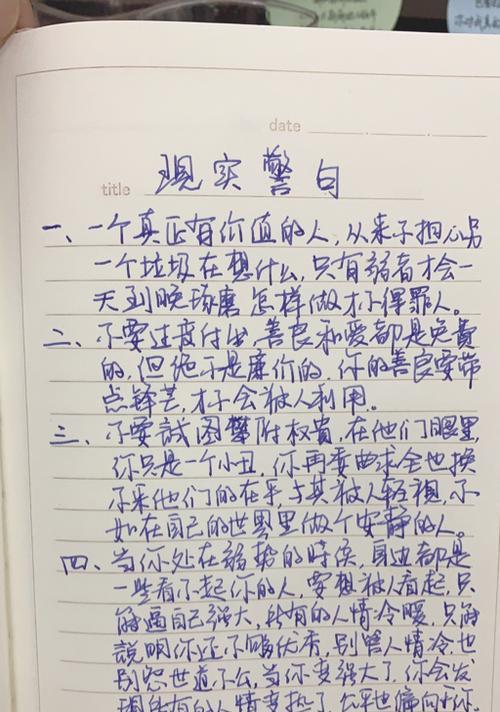 date
现实警句
title
一、一个真正有价值的人,从来不担心另
一个垃圾在想什么,只有弱者才会一
天到晚琢磨怎样做才不得罪人。
二、不要过度付出,善良和爱都是免費
的,但绝不是廉价的,你的善良要带
点锋芒,才不会被人利用。
三、不要試图攀附权貴,在他们眼里,
你只是一个小丑,你再委曲求全也换
不来他们的在乎,与其被人轻視,不
如在自己的世界里做个安静的人。
四、当你处在弱势的時侯,身边都是
一些看不起你的人,要想被人看起,只
能逼自己强大,所有的人情冷暖,只能
説明你还不够优秀,别管人情冷,也
别怨世道不公,当你变强大了,你会发
現所有的人情变热了,公平也偏向于你。